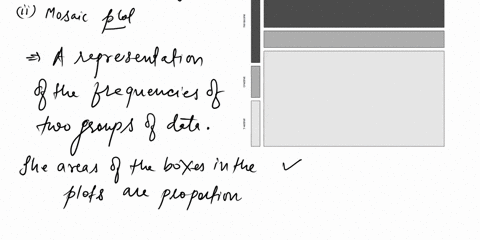 (ii) Mosaic plot
⇒ A representation
of the frequencies of
two groups of data.
The areas of the boxes in the ✓
plots are proportion